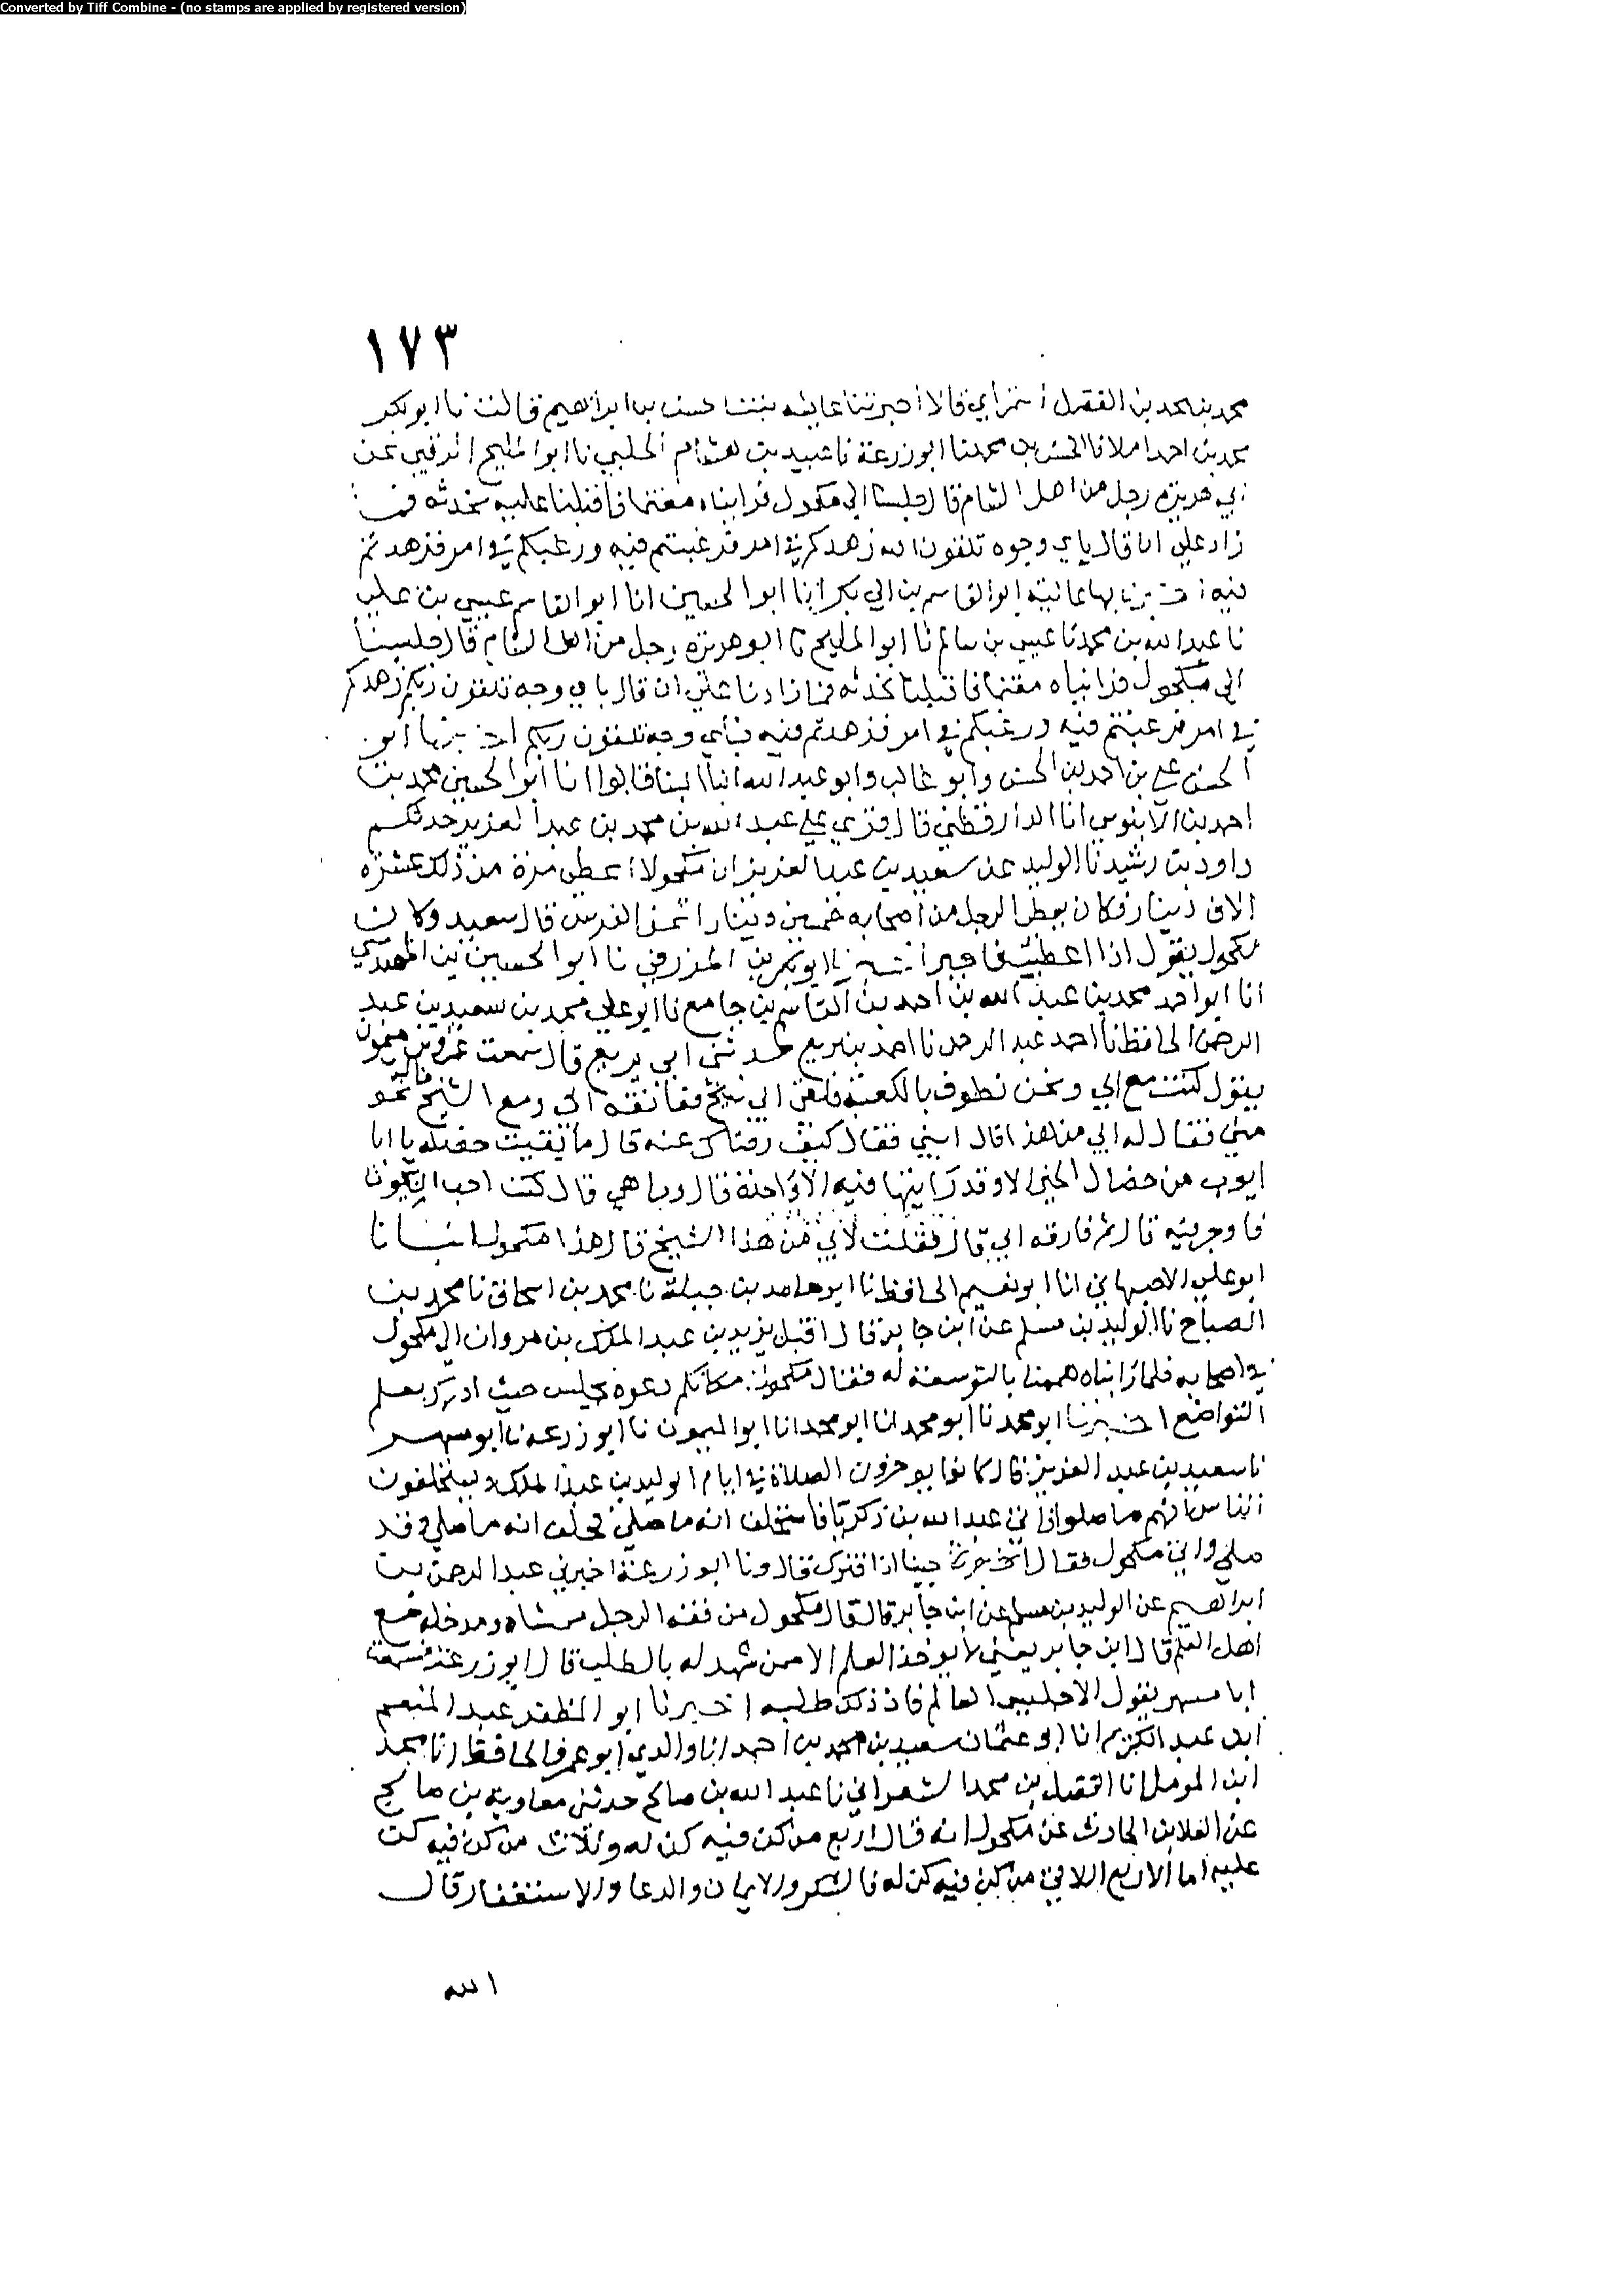 Converted by Tiff Combine - (no stamps are applied by registered version)
١٧٣
محمد بن احمد بن الفضل قالا اخبرتنا عايشه بنت حسن بن ابراهيم قالت نا ابو بكر
محمد بن احمد املا نا الحسن بن محمد نا ابو زرعة نا عبيد بن هشام الحلبي نا ابو المليح الرقي عن
ابي هريرة رجل من اهل الشام قال جلسنا الى مكحول فراينا مغتما فاقبلنا عليه نحدثه فما
زاد على ان قال باي وجوه تلقون الله زهدكم في امر فرغبتم فيه ورغبكم في امر فزهدتم
فيه بها عاليه ابو القاسم بن ابي بكر انا ابو الحسين انا ابو القاسم عيسى بن علي
نا عبد الله بن محمد نا عيسى بن سالم نا ابو المليح نا ابو هريرة رجل من اهل الشام قال جلسنا
الى مكحول فراينا مغتما فاقبلنا نحدثه فما زادنا على ان قال باي وجه تلقون ربكم زهدكم
في امر فرغبتم فيه ورغبكم في امر فزهدتم فيه فباي وجه تلقون ربكم اخبرنا ابو
الحسن علي بن احمد بن الحسن وابو غالب وابو عبد الله ابنا البنا قالوا انا ابو الحسين محمد بن
احمد بن الآبنوسي انا الدارقطني قال قري على عبد الله بن محمد بن عبد العزيز حدثكم
داود بن رشيد نا الوليد عن سعيد بن عبد العزيز ان مكحولا اعطى مرة من ذلك عشرة
الاف دينار فكان يعطي الرجل من اصحابه خمسين دينارا ثمن الفرس قال سعيد وكان
مكحول يقول اذا اعطيت ابو بكر بن المزرفي نا ابو الحسين بن المهتدي
انا ابو احمد محمد بن عبد الله بن احمد بن القاسم بن جامع نا ابو علي محمد بن سعيد بن عبد
الرحمن الحافظ نا احمد عبد الرحمن نا احمد بن بزيع حدثني ابي بزيع قال سمعت عمرو بن ميمون
يقول كنت مع ابي ونحن نطوف بالكعبة فلقي ابي شيخ فعانقه ابي ومع الشيخ فتى نحو
مني فقال له ابي من هذا قال ابني فقال كيف رضاك عنه قال ما بقيت خصله يا ابا
ايوب من خصال الخير الا وقد رايتها فيه الا واحدة قال وما هي قال كنت احب ان يكون
فاوجر فيه قال ثم فارقه ابي قال فقلت لابي من هذا الشيخ قال هذا مكحول انبانا
ابو علي الاصبهاني انا ابو نعيم الحافظ نا ابو حامد بن جبلة نا محمد بن اسحاق نا محمد بن
الصباح نا الوليد بن مسلم عن ابن جابر قال اقبل يزيد بن عبد الملك بن مروان الى مكحول
في اصحابه فلما رايناه هممنا بالتوسعة له فقال مكحول مكانكم دعوه يجلس حيث ادرك يعلم
التواضع اخبرنا ابو محمد نا ابو محمد انا ابو محمد انا ابو الميمون نا ابو زرعه نا ابو مسهر
نا سعيد بن عبد العزيز قال كانوا يوخرون الصلاة في ايام الوليد بن عبد الملك ويستحلفون
الناس انهم ما صلوا فاتي عبد الله بن زكريا فاستحلف انه ما صلى فحلف انه ما صلى وقد
صلى واتي مكحول فقال جينا اذا فترك قال ونا ابو زرعة اخبرني عبد الرحمن بن
ابراهيم عن الوليد بن مسلم عن ابن جابر قال قال مكحول من فقه الرجل ممشاه ومدخله مع
اهل العلم قال ابن جابر يعني لا يوخذ العلم الا ممن شهد له بالطلب قال ابو زرعة فسمعت
ابا مسهر يقول الا جليس العالم فان ذلك طلبه اخبرنا ابو المظفر عبد المنعم
ابن عبد الكريم انا ابو عثمان سعيد بن محمد بن احمد انا والدي ابو عمرو الحافظ انا محمد
ابن المومل نا الفضل بن محمد الشعراني نا عبد الله بن صالح حدثني معاوية بن صالح
عن العلا بن الحارث عن مكحول انه قال اربع من كن فيه كن له وثلاث من كن فيه كن
عليه اما الاربع اللاتي من كن فيه كن له فالشكر والايمان والدعا والاستغفار قال
الله